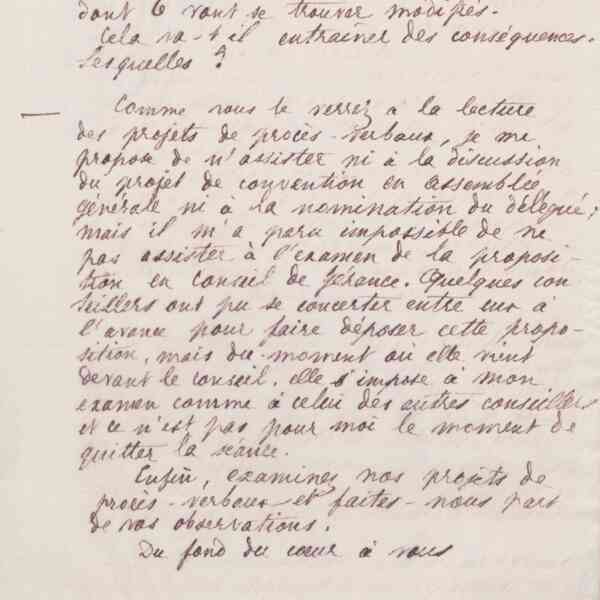 dont 6 vont se trouver modifiés.
Cela va-t-il entraîner des conséquences.
Lesquelles ?
Comme vous le verrez à la lecture
des projets de procès-verbaux, je me
propose de n'assister ni à la discussion
du projet de convention en assemblée
générale ni à la nomination du délégué;
mais il m'a paru impossible de ne
pas assister à l'examen de la proposi-
tion en Conseil de Gérance. Quelques con
seillers ont pu se concerter entre eux à
l'avance pour faire déposer cette propo-
sition, mais du moment où elle vient
devant le conseil, elle s'impose à mon
examen comme à celui des autres conseillers
et ce n'est pas pour moi le moment de
quitter la séance.
Enfin, examinez nos projets de
procès-verbaux et faites-nous part
de vos observations.
Du fond du cœur à vous